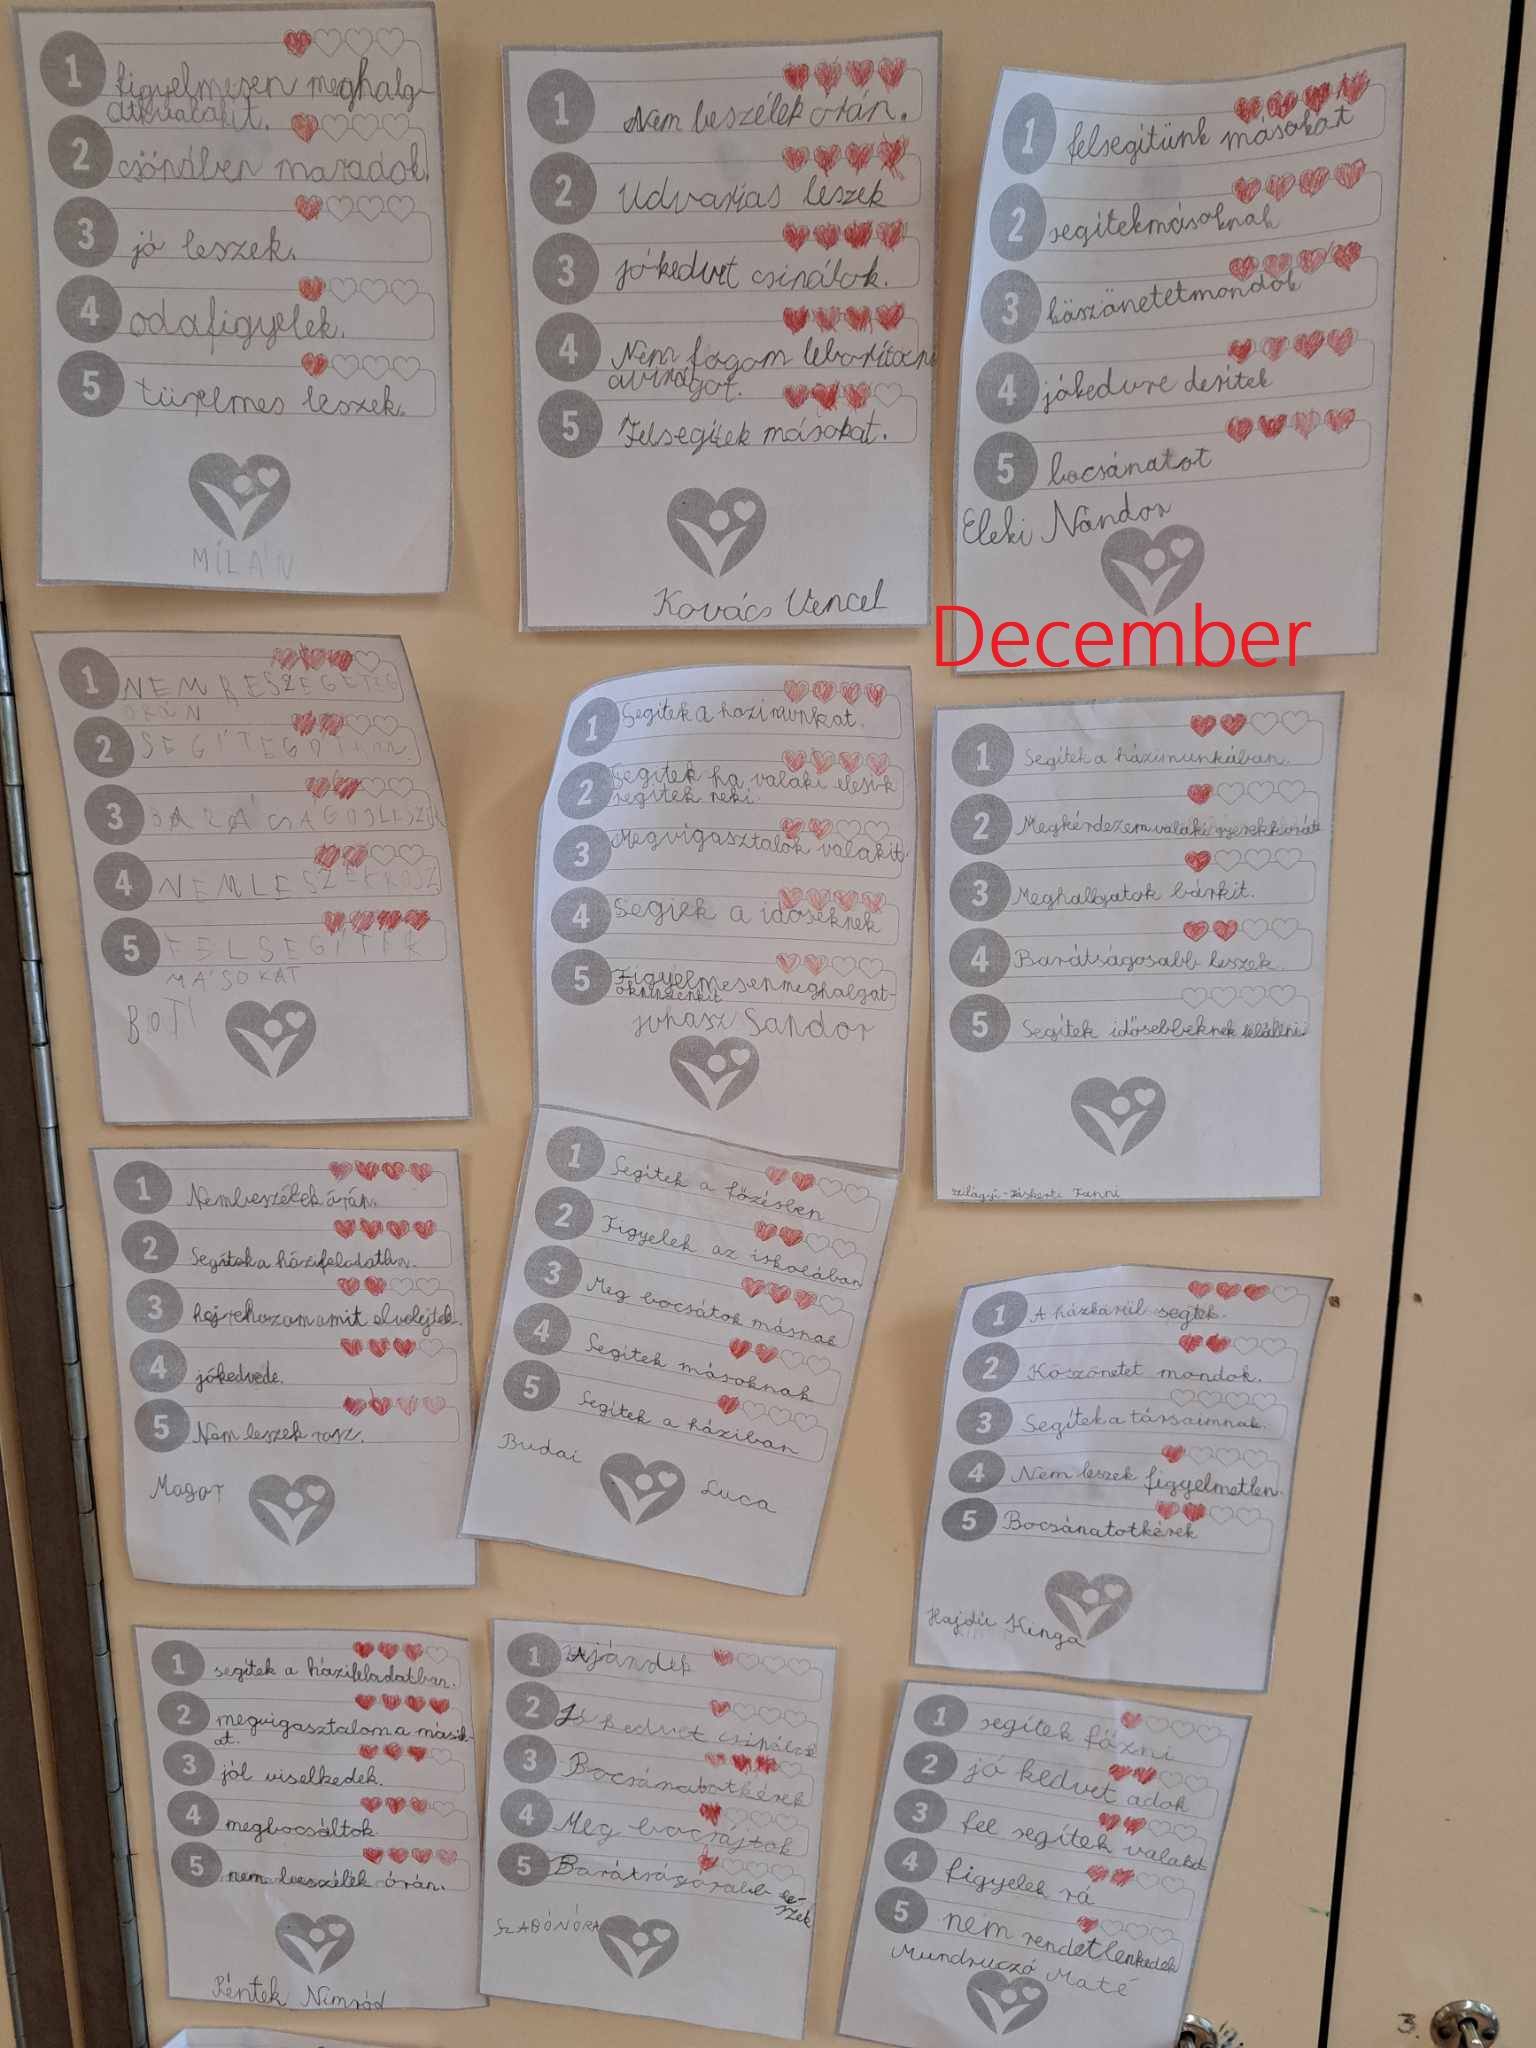 1 figyelmesen meghalg-
atkvalakit.
2 csöndben maradok.
3 jó leszek.
4 odafigyelek.
5 türelmes leszek.
MILÁN
1 Nem beszélek órán.
2 Udvarias leszek
3 jókedvet csinálok.
4 Nem fogom leborítani
avirágot.
5 Felsegítek másokat.
Kovács Vencel
1 felsegítünk másokat
2 segítekmásoknak
3 köszönetetmondok
4 jókedvre derítek
5 bocsánatot
Eleki Nándor
December
1 NEM BESZÉGETEG
ÓRÁN
2
3
4 NEMLESZEK ROSZ
5 FELSEGÍTEK
MÁSOKAT
BOTI
1 Segítek a házimunkát.
2 Segítek ha valaki elesik
segítek neki.
3 Megvigasztalok valakit.
4 Segítek a időseknek
5 Figyelmesenmeghalgat-
juhasz Sándor
1 Segítek a házimunkában.
2 Megkérdezem valaki
3 Meghallgatok bárkit.
4 Barátságosabb leszek.
5 Segítek idősebbeknek felállni.
Fanni
1 Nembeszélek órán.
2 Segítek a házifeladatban.
3 hejrehozom amit elvelejtek.
4 jókedvede.
5 Nem leszek rosz.
Magor
1 Segítek a főzésben
2 Figyelek az iskolában
3 Meg bocsátok másnak
4 Segítek másoknak
5 Segítek a háziban
Budai Luca
1 A házkörül segítek.
2 Köszönetet mondok.
3 Segítek a társaimnak.
4 Nem leszek figyelmetlen.
5 Bocsánatotkérek
Hajdú Kinga
1 segítek a házifeladatban.
2 megvigasztalom a másik-
at.
3 jól viselkedek.
4 megbocsáltok.
5 nem beszélek órán.
Péntek Nimród
1 Ajándék
2 Jó kedvet csinálok
3 Bocsánatotkérek
4 Meg bocsájtok
5 Barátságosabb le-
szek
SZABÓ NÓRA
1 segítek főzni
2 jó kedvet adok
3 fel segítek valakit
4 figyelek rá
5 nem rendetlenkedek
Mundruczó Máté
3.